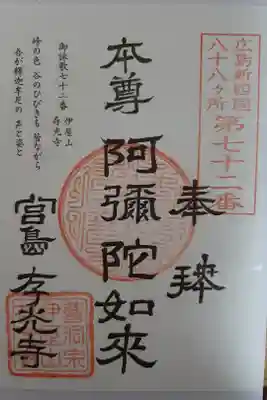 広島新四国
八十八ヶ所
第七十二番
奉拜
本尊
阿彌陀如來
御詠歌七十二番
伊屋山
存光寺
峰の色 谷のひびきも 皆ながら
吾が釋迦牟尼の 声と姿と
宮島 存光寺
曹洞宗